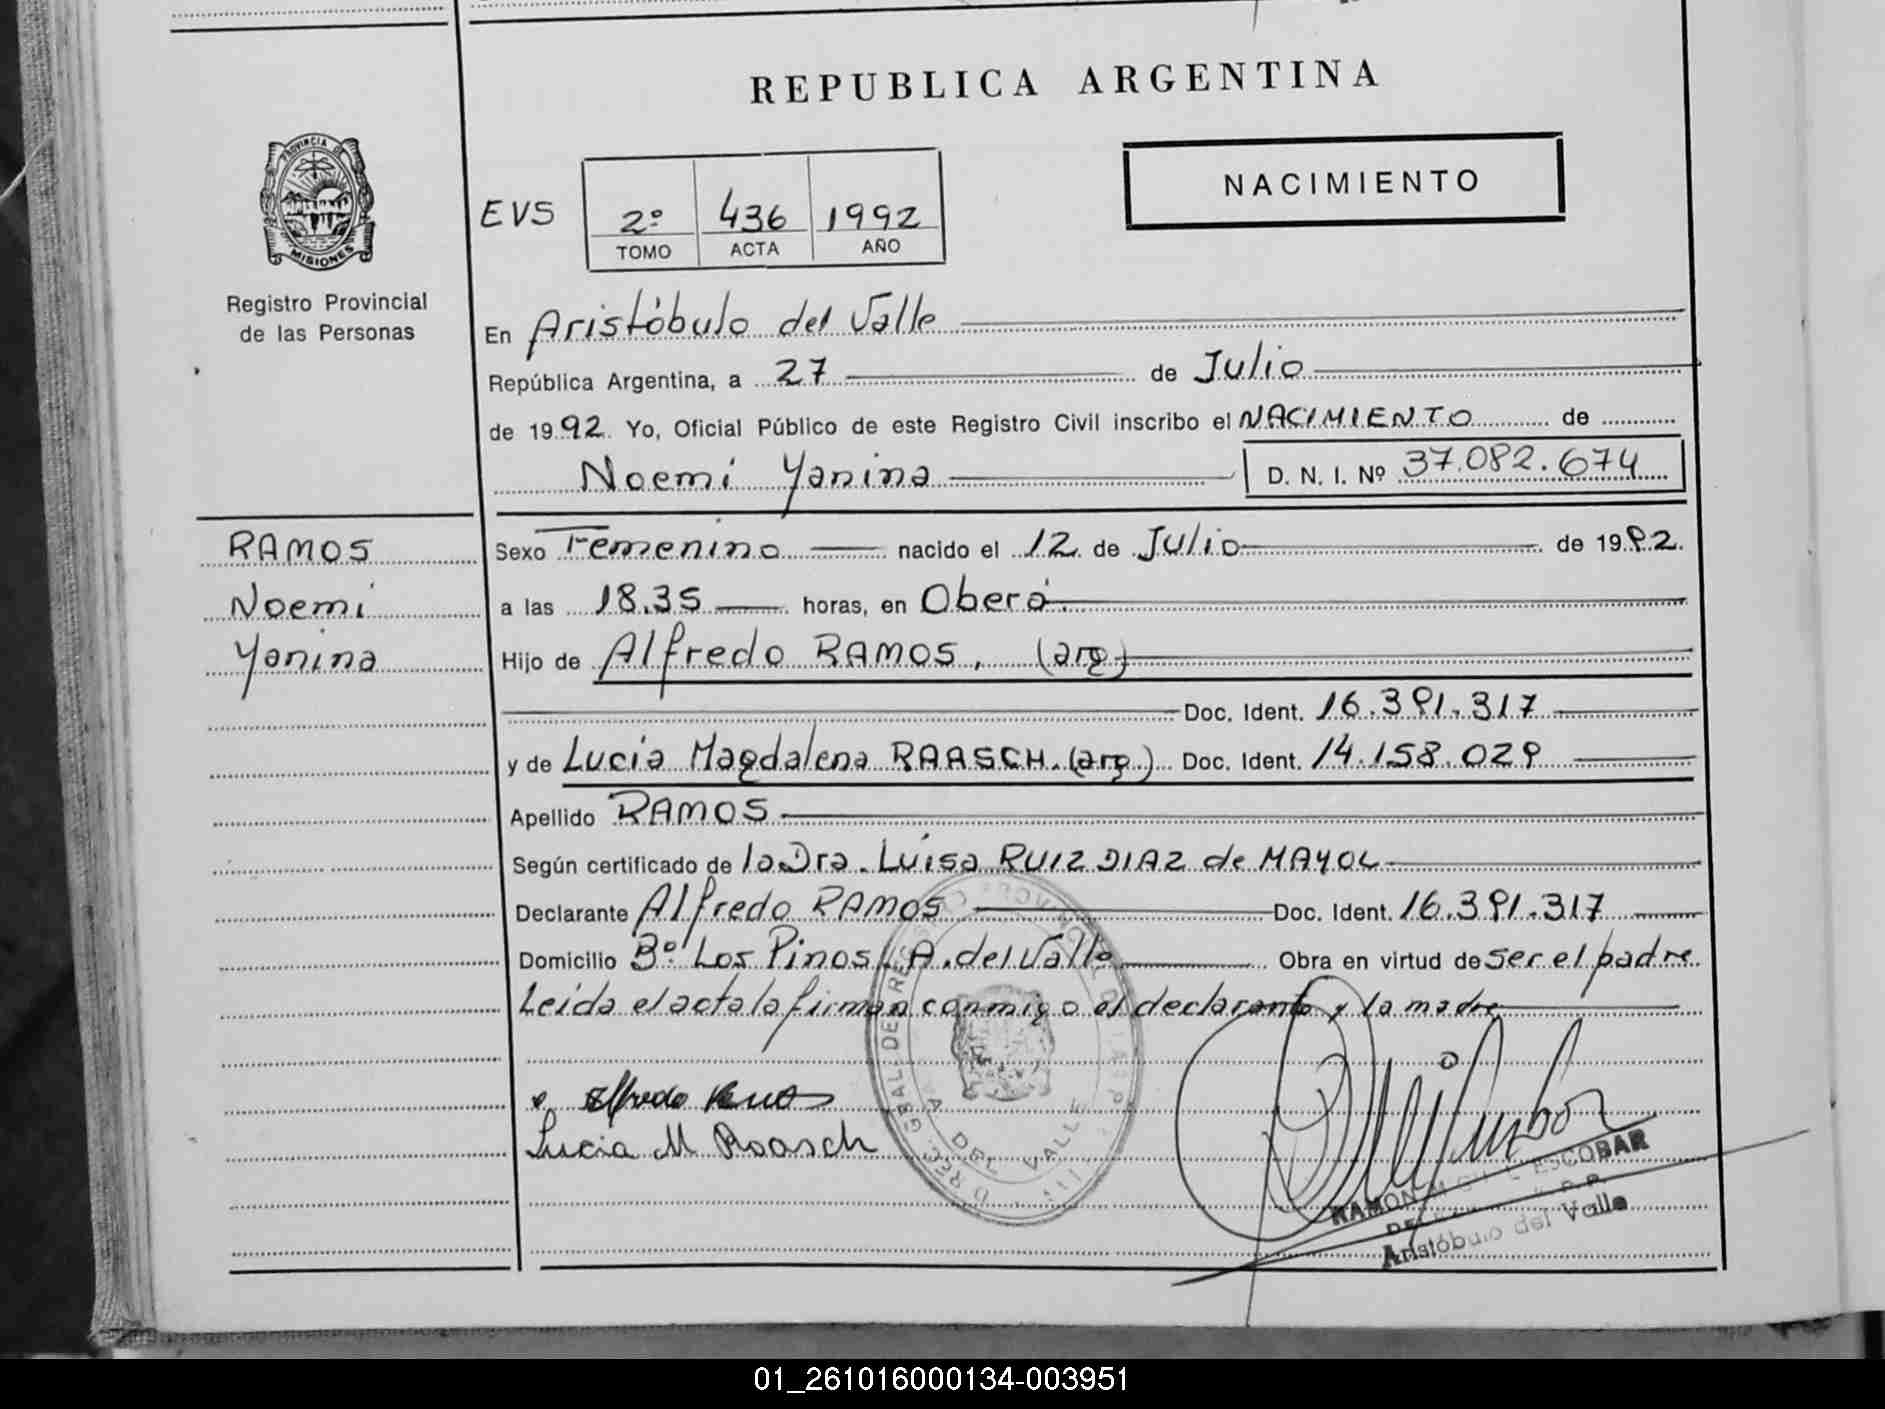 REPUBLICA ARGENTINA
PROVINCIA DE
MISIONES
Registro Provincial
de las Personas
NACIMIENTO
EVS 2º 436 1992
TOMO ACTA AÑO
En Aristóbulo del Valle
República Argentina, a 27 de Julio
de 1992. Yo, Oficial Público de este Registro Civil inscribo el NACIMIENTO de
Noemi Yanina D. N. I. Nº 37.082.674
RAMOS
Noemi
Yanina
Sexo Femenino nacido el 12 de Julio de 1992.
a las 18.35 horas, en Oberá.
Hijo de Alfredo RAMOS, (arg)
Doc. Ident. 16.391.317
y de Lucia Magdalena RAASCH. (arg.) Doc. Ident. 14.158.029
Apellido RAMOS
Según certificado de la Dra. Luisa RUIZ DIAZ de MAYOL
Declarante Alfredo RAMOS Doc. Ident. 16.391.317
Domicilio Bº Los Pinos A. del Valle Obra en virtud de ser el padre.
Leida el acta la firman conmigo el declarante y la madre
Alfredo Ramos
Lucia M Raasch
DEL VALLE
RAMON ESCOBAR
Aristóbulo del Valle
01_261016000134-003951